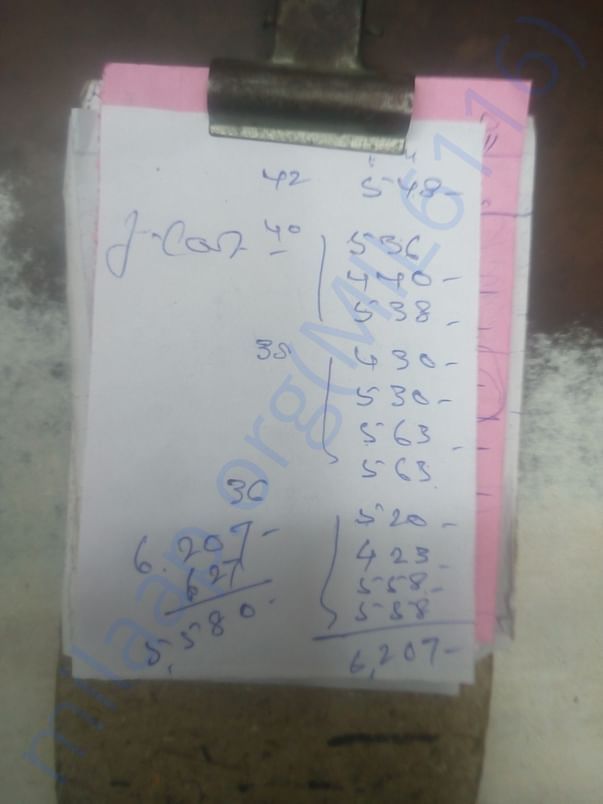 42 548-
40 536
440-
538-
38 430-
530-
563-
563
36 520-
423-
558-
558
6,207-
6.207-
627
5,580-
milaap.org(MIL6116)